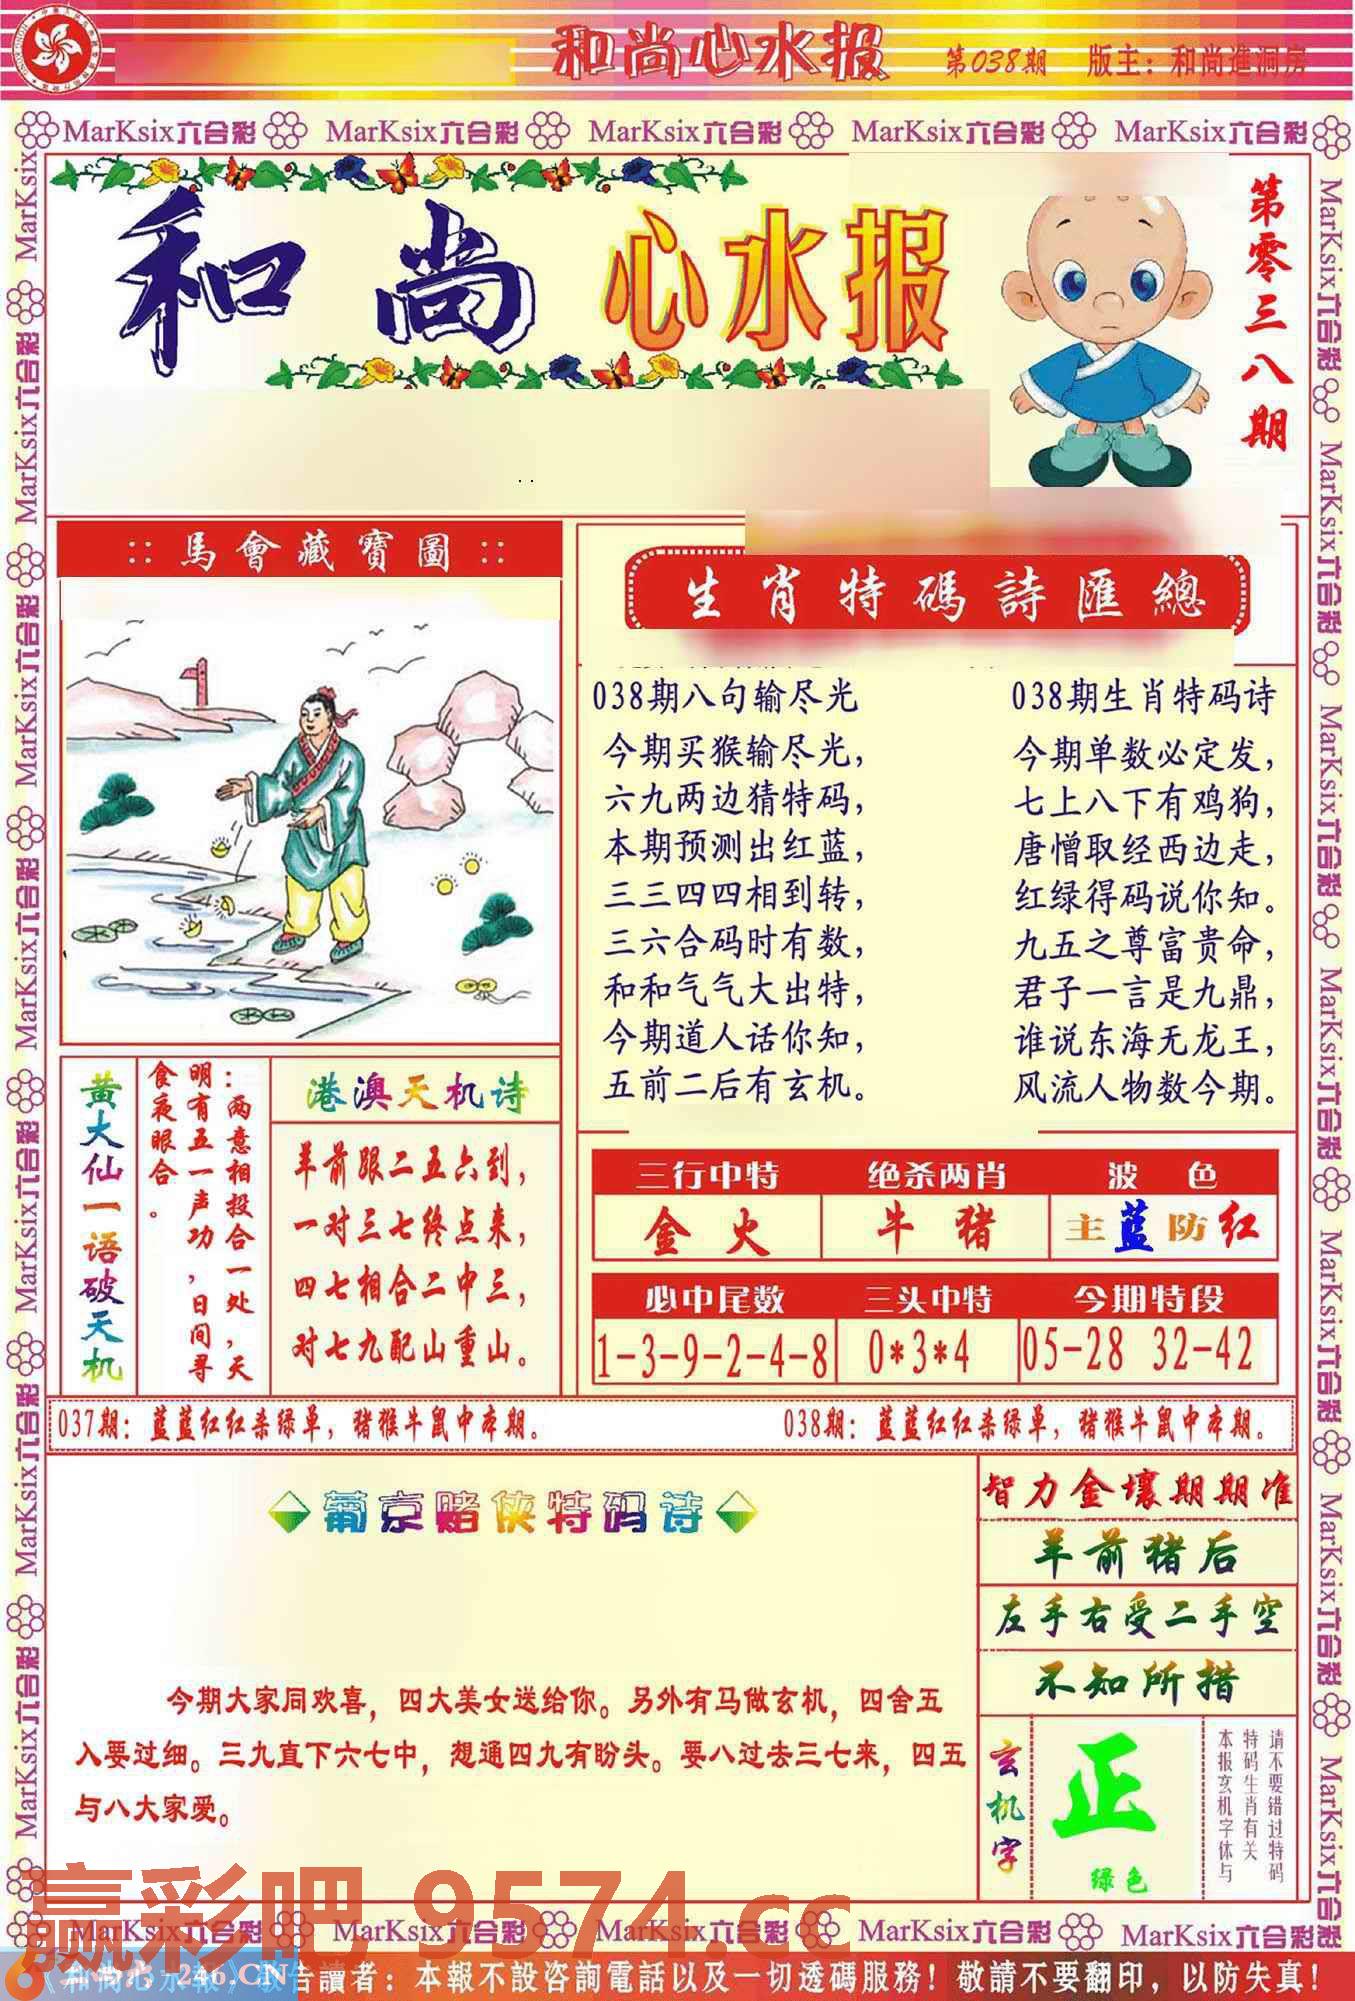 和尚心水报 第038期 版主：和尚進洞房
MarKsix六合彩 MarKsix六合彩 MarKsix六合彩 MarKsix六合彩 MarKsix六合彩
和尚心水报
第零三八期
馬會藏寶圖
生肖特碼詩匯總
038期八句输尽光
今期买猴输尽光，
六九两边猜特码，
本期预测出红蓝，
三三四四相到转，
三六合码时有数，
和和气气大出特，
今期道人话你知，
五前二后有玄机。
038期生肖特码诗
今期单数必定发，
七上八下有鸡狗，
唐憎取经西边走，
红绿得码说你知。
九五之尊富贵命，
君子一言是九鼎，
谁说东海无龙王，
风流人物数今期。
黄大仙一语破天机
：两意相投合一处，天
明有五一声功，日间寻
食夜眼合。
港澳天机诗
羊前跟二五六到，
一对三七终点来，
四七相合二中三，
对七九配山重山。
三行中特 绝杀两肖 波色
金火 牛猪 主蓝防红
必中尾数 三头中特 今期特段
1-3-9-2-4-8 0*3*4 05-28 32-42
037期：蓝蓝红红杀绿单，猪猴牛鼠中本期。 038期：蓝蓝红红杀绿单，猪猴牛鼠中本期。
葡京赌侠特码诗
今期大家同欢喜，四大美女送给你。另外有马做玄机，四舍五
入要过细。三九直下六七中，想通四九有盼头。要八过去三七来，四五
与八大家爱。
智力金壤期期准
羊前猪后
左手右受二手空
不知所措
玄机字
正
绿色
请不要错过特码
特码生肖有关
本报玄机字体与
赢彩吧 9574.cc
MarKsix六合彩 MarKsix六合彩 MarKsix六合彩 MarKsix六合彩 MarKsix六合彩
246.CN
告讀者：本報不設咨詢電話以及一切透碼服務！敬請不要翻印，以防失真！